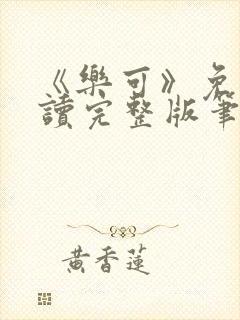 《樂可》免
讀完整版筆
黃香蓮